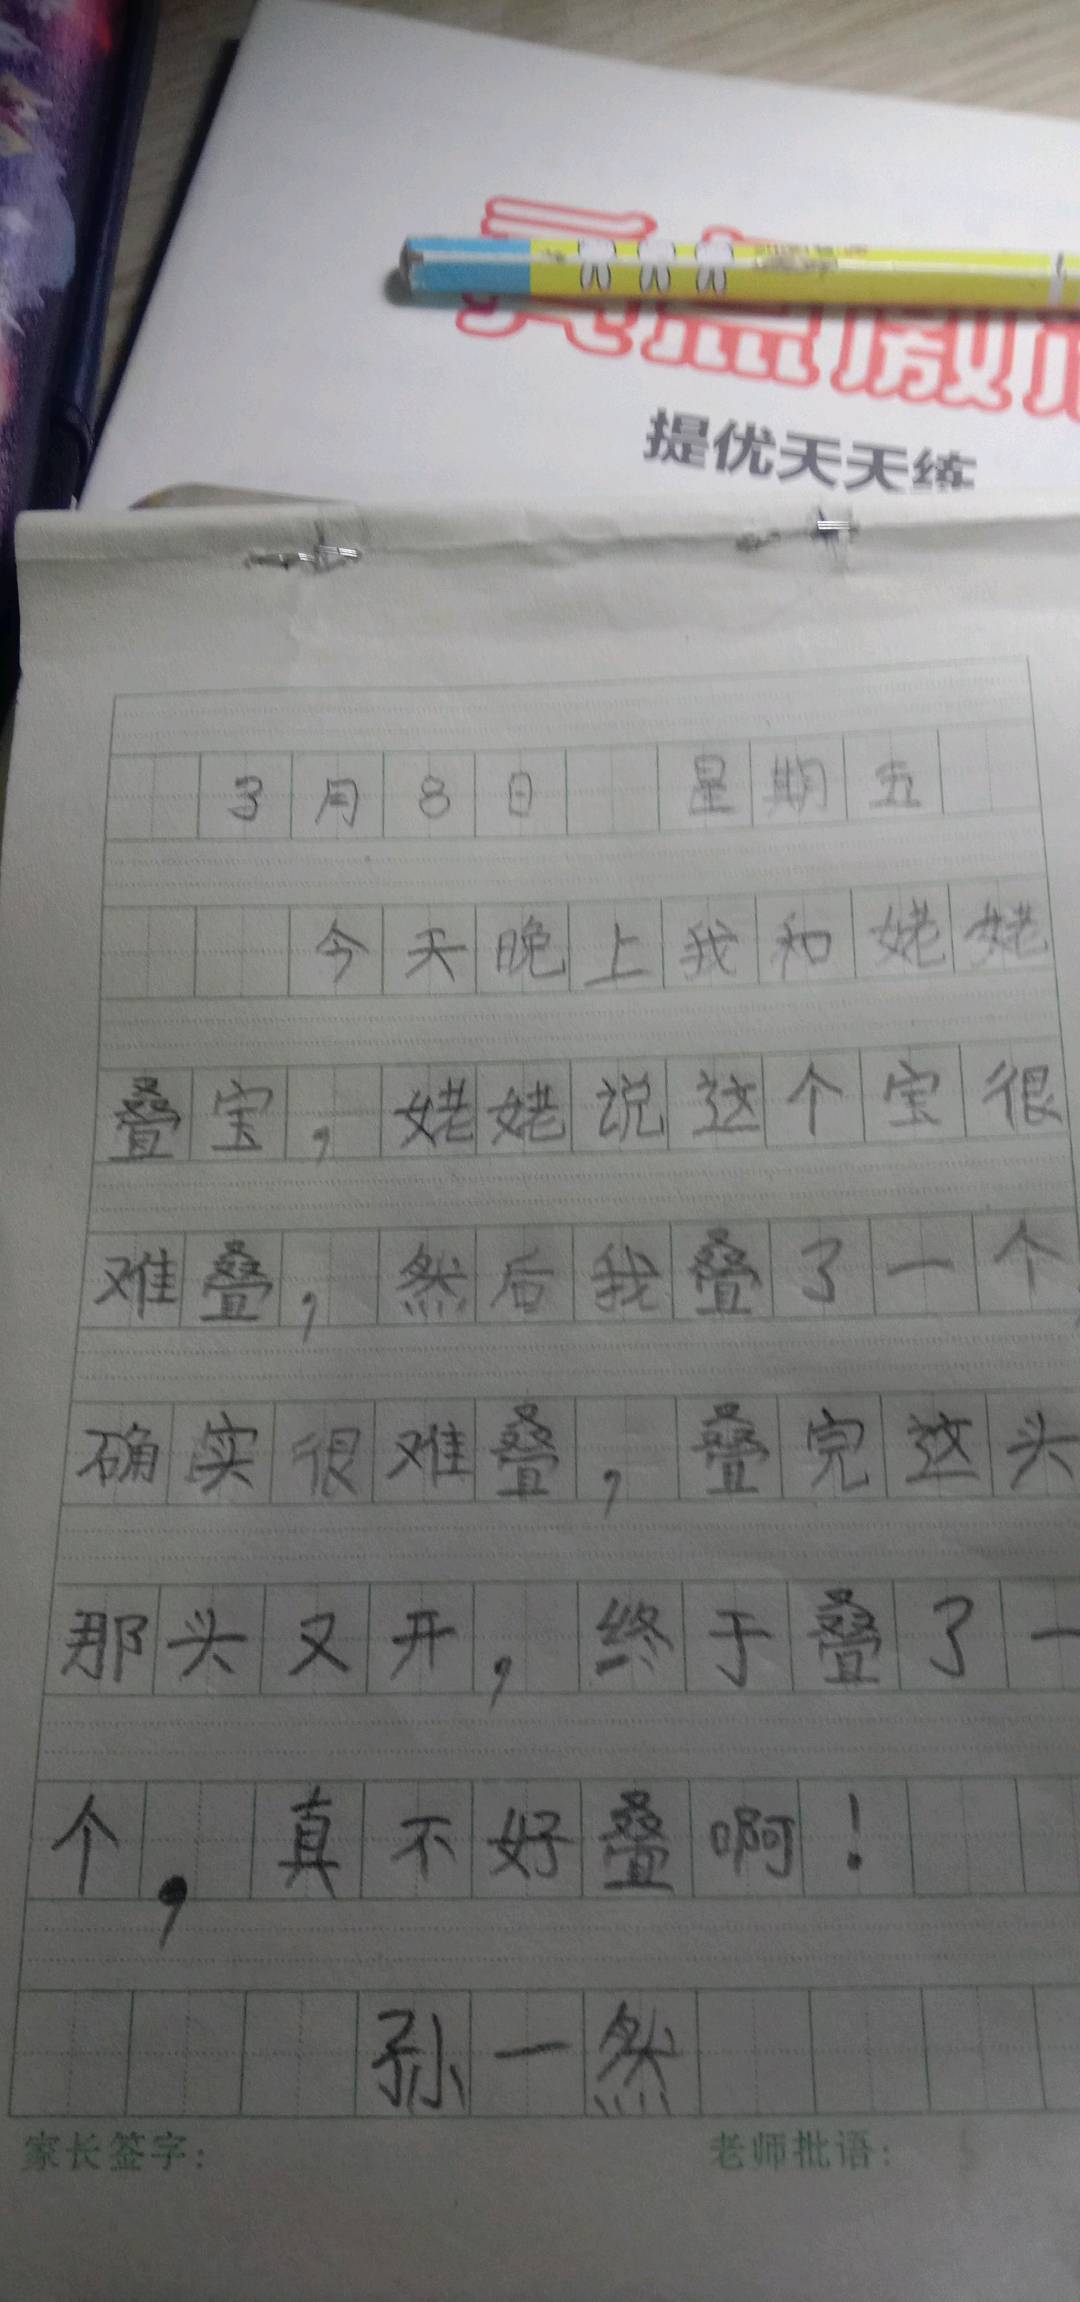 提优天天练
3月8日 星期五
今天晚上我和姥姥
叠宝，姥姥说这个宝很
难叠，然后我叠了一个，
确实很难叠，叠完这头
那头又开，终于叠了一
个，真不好叠啊！
孙一然
家长签字：
老师批语：